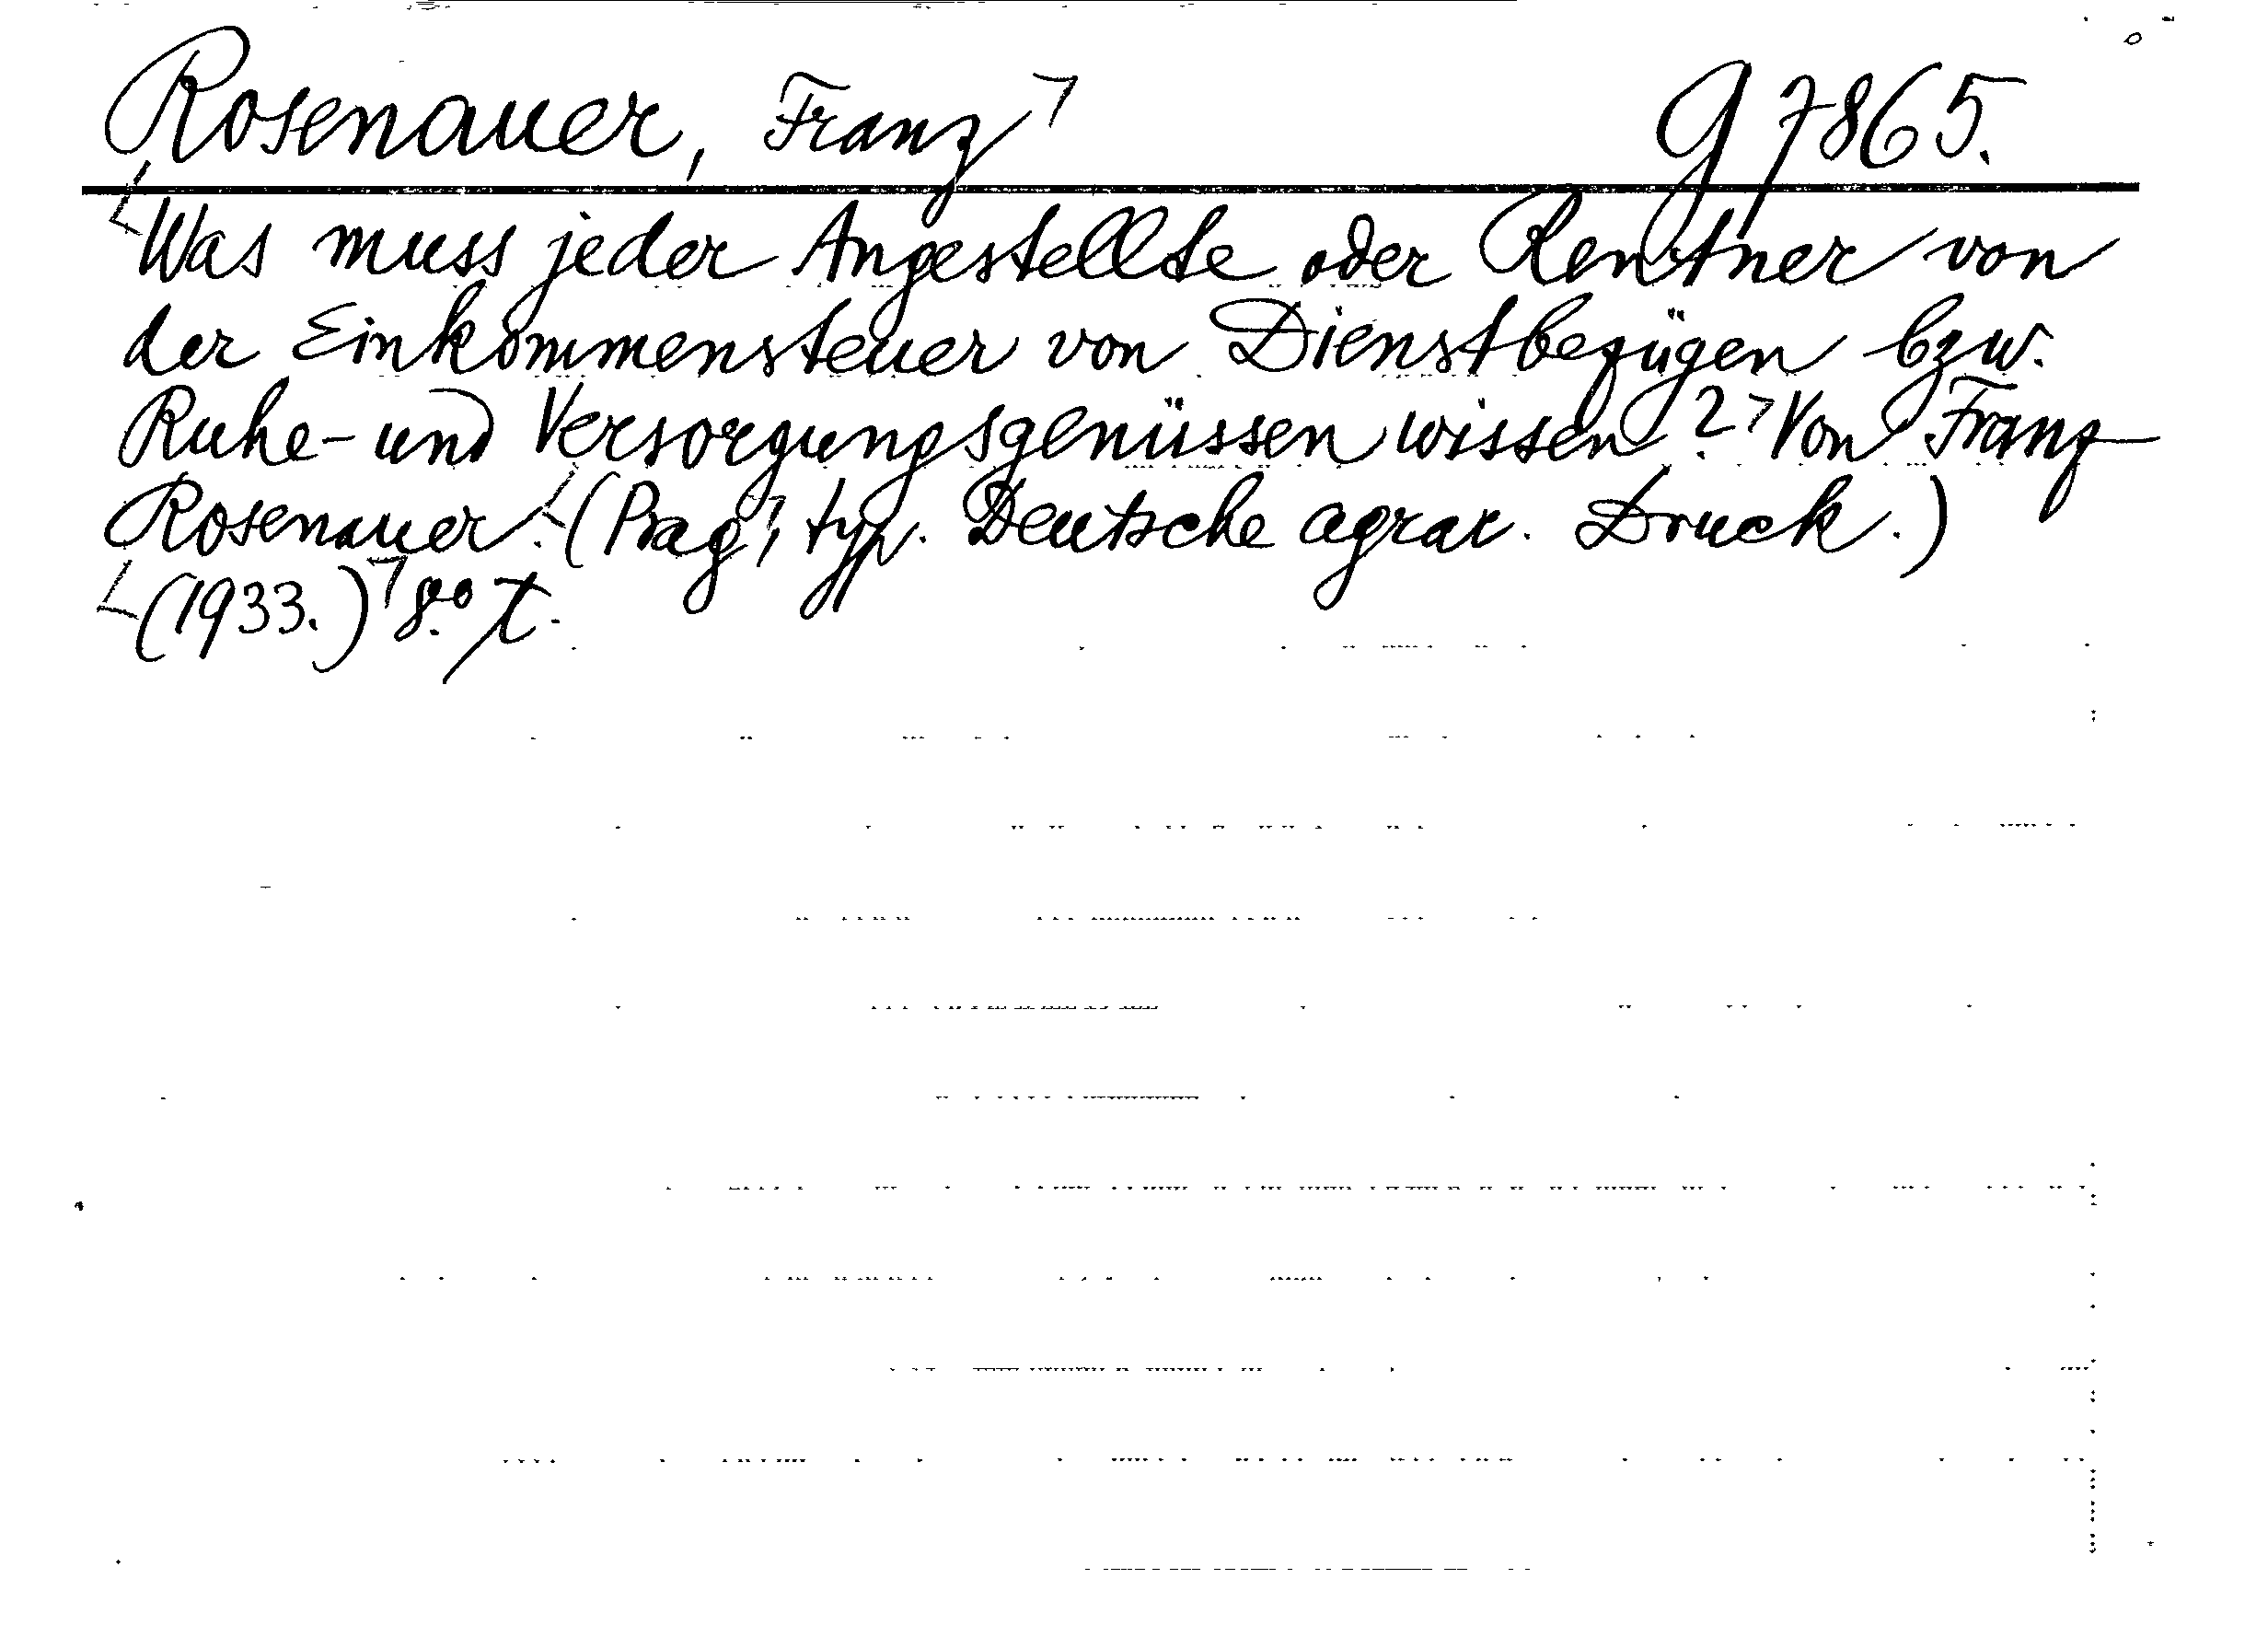 Rosenauer, Franz g 7865.
Was muss jeder Angestellte oder Rentner von
der Einkommensteuer von Dienstbezügen bzw.
Ruhe- und Versorgungsgenüssen wissen? Von Franz
Rosenauer. (Prag, typ. Deutsche agrar. Druck.)
(1933.) 8.°